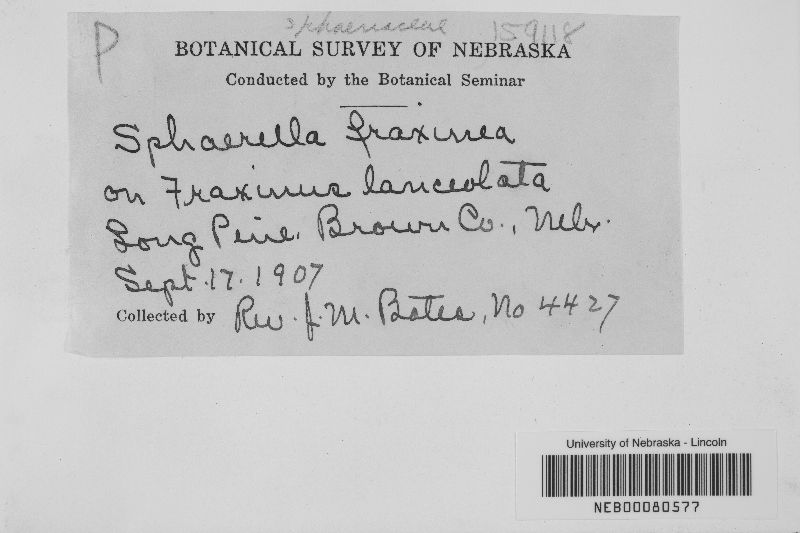 P Sphaeriaceae 159118
BOTANICAL SURVEY OF NEBRASKA
Conducted by the Botanical Seminar
Sphaerella fraxinea
on Fraxinus lanceolata
Long Pine, Brown Co., Nebr.
Sept. 17. 1907
Collected by Rev. J. M. Bates, No 4427
University of Nebraska - Lincoln
NEB00080577